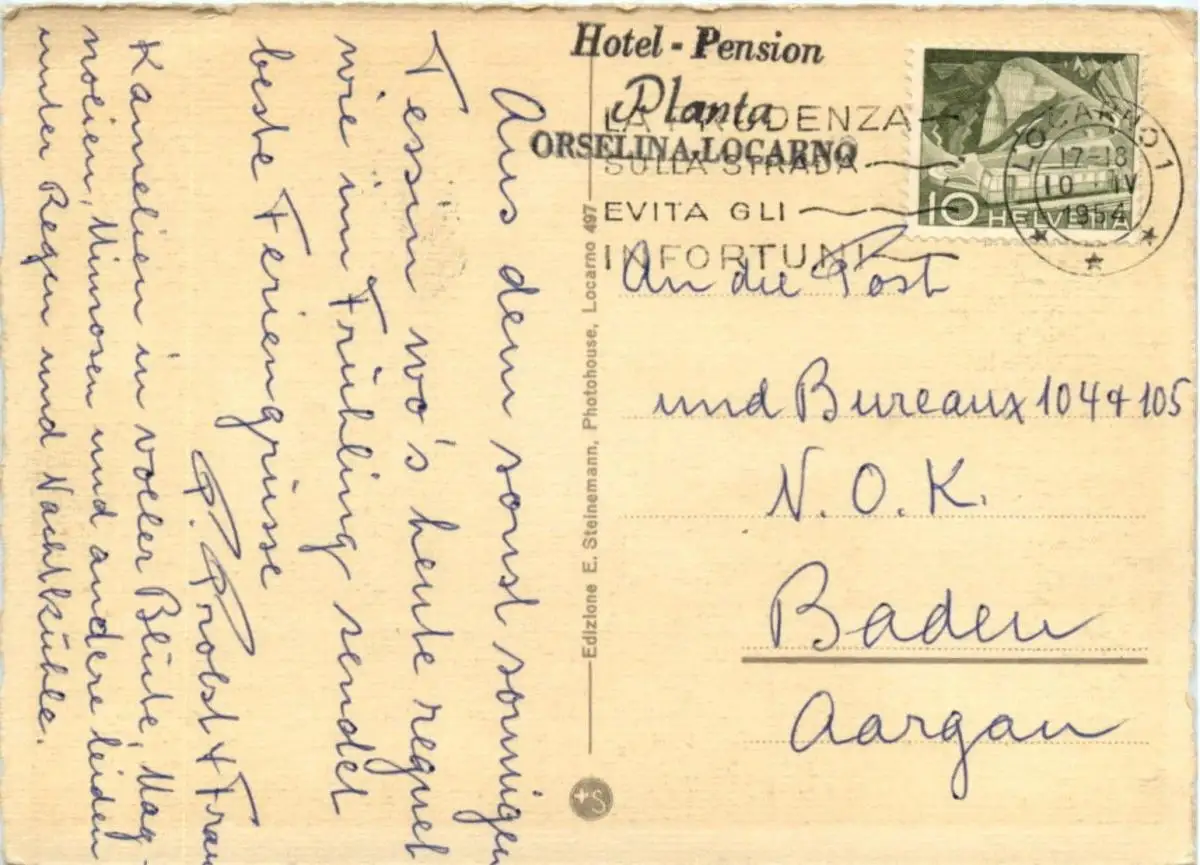 Hotel - Pension
Planta
ORSELINA-LOCARNO
LA PRUDENZA
SULLA STRADA
EVITA GLI
INFORTUNI
LOCARNO 1
17-18
10 · IV
1954
10 HELVETIA
Aus dem sonst sonnigen
Tessin wo's heute regnet
wie im Frühling sendet
beste Feriengrüsse
P. Probst & Frau
Kamelien in voller Blüte, Mag-
nolien, Mimosen und andere leiden
unter Regen und Nachtkühle.
Edizione E. Steinemann, Photohouse, Locarno 497
An die Post
und Bureaux 104 & 105
N.O.K.
Baden
Aargau
S